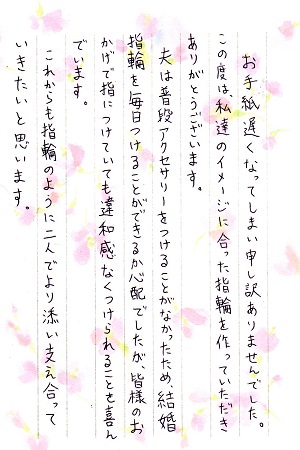 お手紙遅くなってしまい申し訳ありませんでした。
この度は、私達のイメージに合った指輪を作っていただき
ありがとうございます。
夫は普段アクセサリーをつけることがなかったため、結婚
指輪を毎日つけることができるか心配でしたが、皆様のお
かげで指につけていても違和感なくつけられることを喜ん
でいます。
これからも指輪のように二人でより添い支え合って
いきたいと思います。